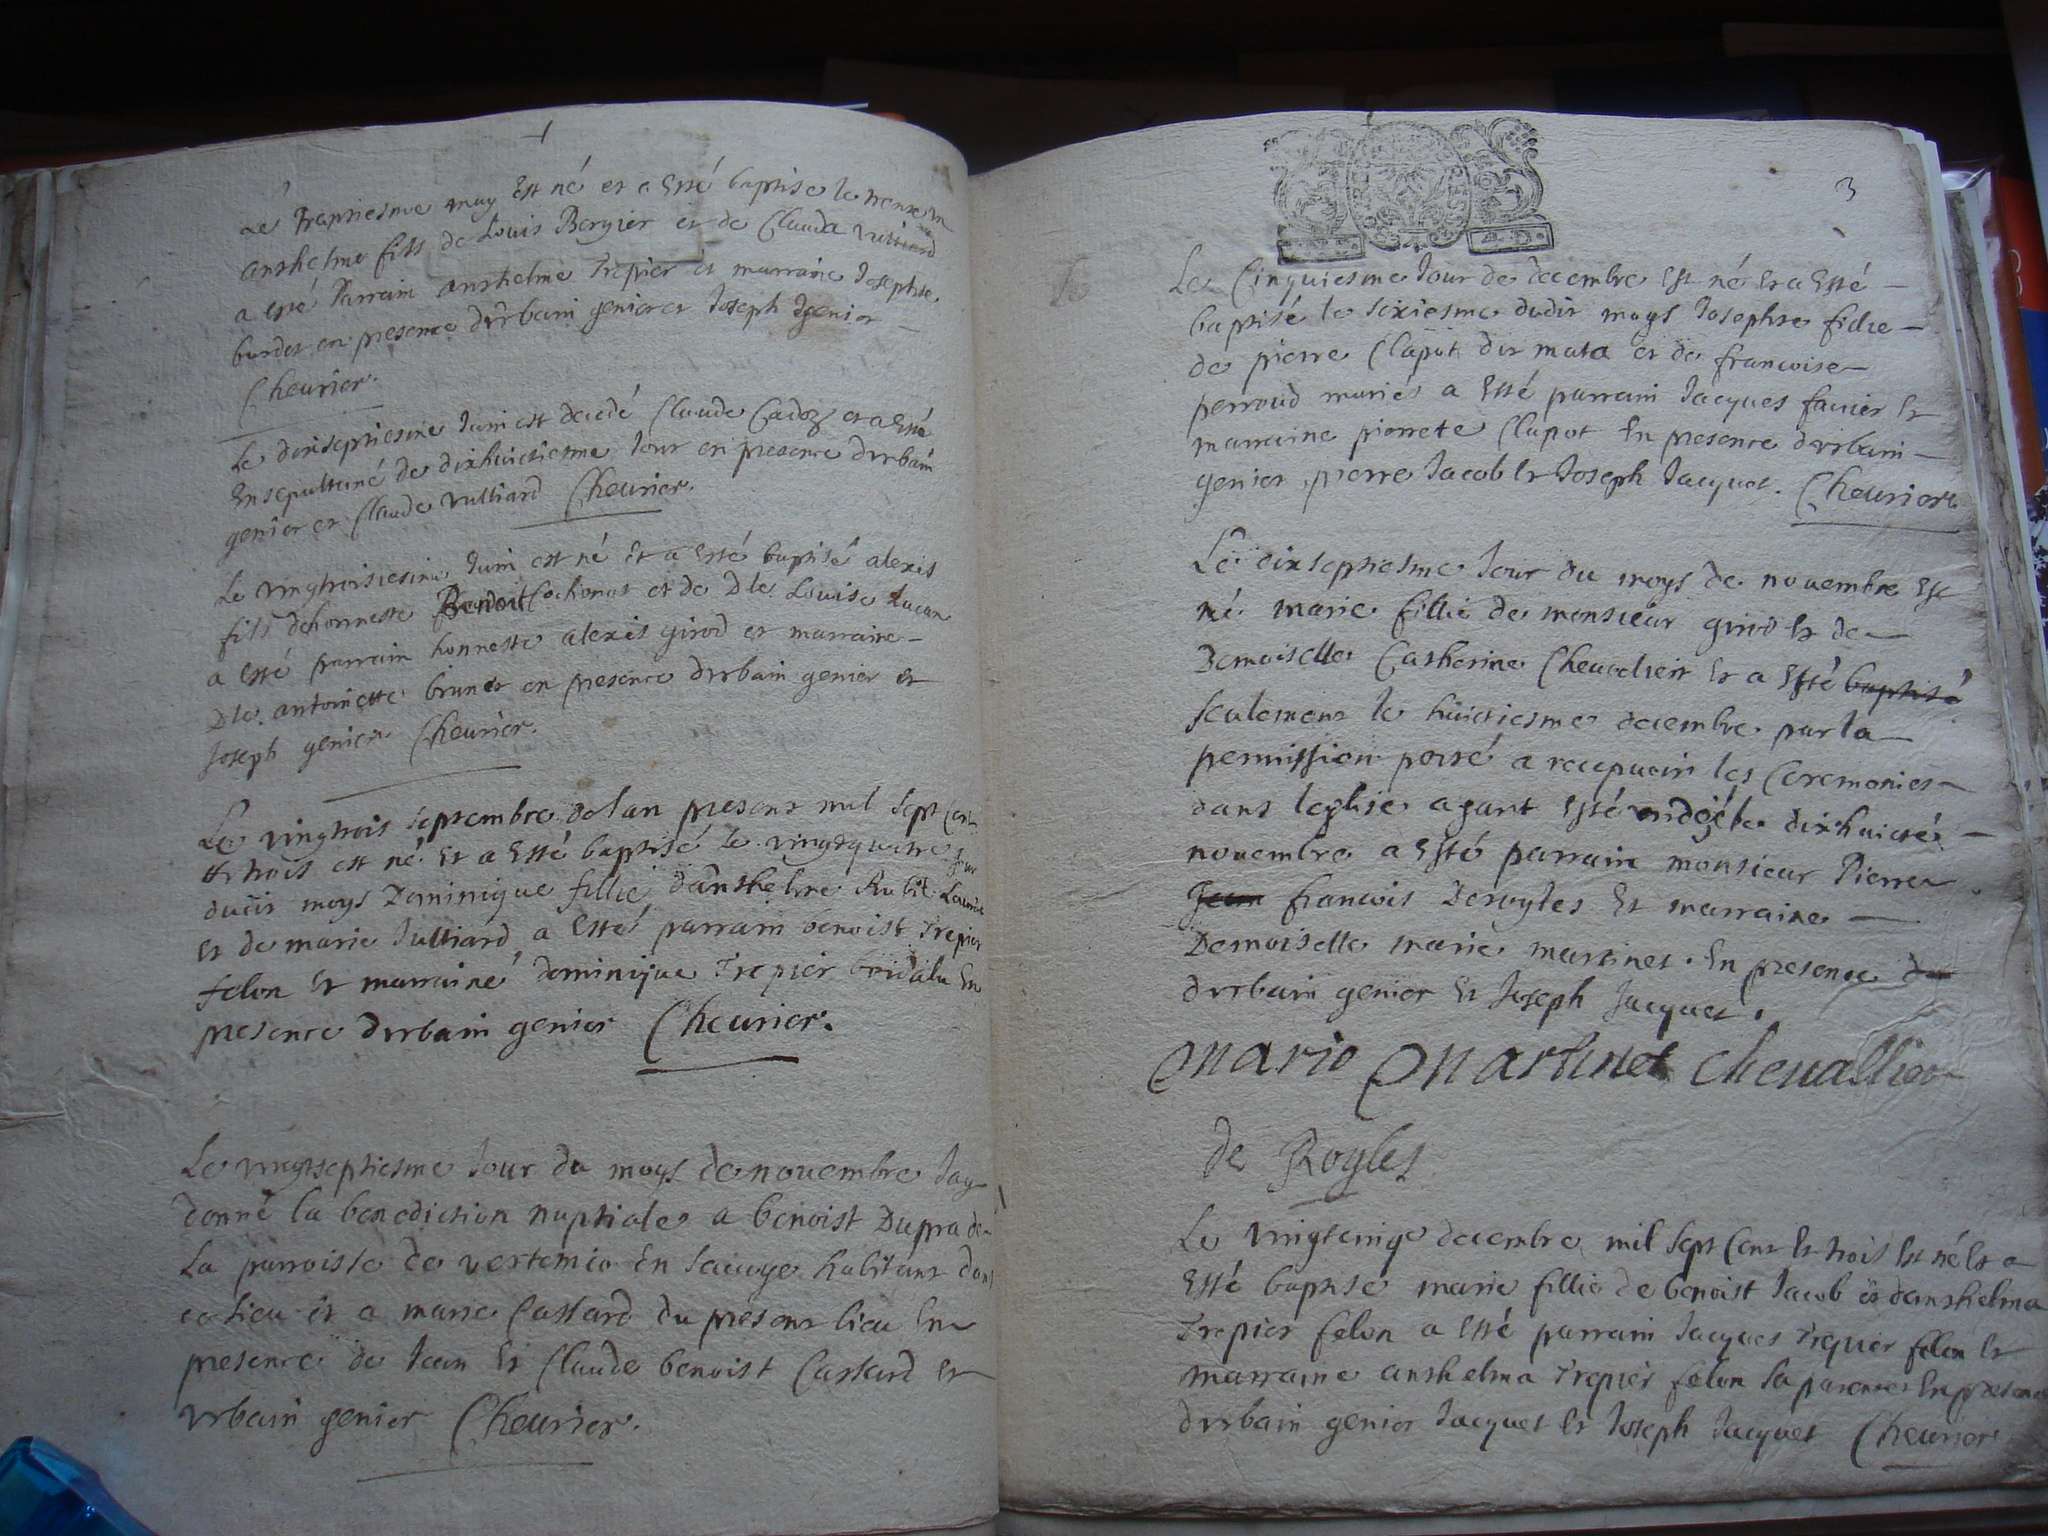 Le trantiesme may Est né et a Esté baptise le trente un
anthelme fils de Louis Bergier et de Clauda vulliard
a esté Parrain anthelme Trepier et marraine Josephte
burdet en presence d'vrbain genier et Joseph genier
Cheurier.
Le dixseptiesme Juin est decedé Claude Cadoz et a Esté
Ensepulturé le dixhuictiesme Jour en presence dvrbain
genier et Claude vulliard Cheurier.
Le vingtroisiesme Juin est né Et a Esté baptisé alexis
fils dehonneste Benoit Cochonat et de Dle Louise
a esté parrain honneste alexis girod et marraine
Dle. antoinette brunet en presence dvrbain genier et
Joseph genier Cheurier.
Le vingtrois septembre de lan present mil sept Cent
et trois est né Et a Esté baptisé le vingtquatre Jour
dudit moys Dominique fillie danthelme Rubit
Et de marie Julliard a Esté parrain benoist Trepier
felon Et marraine dominique Trepier En
presence dvrbain genier Cheurier.
Le vingtseptiesme Jour du moys de nouembre Jay
donné la benediction nuptiale a benoist Dupra de
La parroisse de En sauoye habitant dans
ce lieu et a marie Cassard du present lieu En
presence de Jean Et Claude benoist Cassard et
vrbain genier Cheurier.
3
Le Cinquiesme Jour de decembre Est né Et a Esté
baptisé le sixiesme dudit moys Josephte fillie
de pierre Clapot dit mata et de francoise
perroud mariés a Esté parrain Jacques fauier Et
marraine pierrete Clapot En presence dvrbain
genier pierre Jacob Et Joseph Jacquet. Cheurier.
Le dixseptiesme Jour du moys de nouembre Est
né marie fillie de monsieur girod Et de
Demoiselle Catherine Cheuallier Et a Esté baptisé
seulement le huictiesme decembre par la
permission a recepuoir les Ceremonies
dans leglise ayant esté ondoyé le dixhuicté
nouembre a Esté parrain monsieur Pierre
Jean francois Deroyles Et marraine
Demoiselle marie martinet. En presence de
dvrbain genier Et Joseph Jacquet.
marie Martinet cheuallier
de Royles
Le vingtcinqe decembre mil sept Cent Et trois Est né Et a
Esté baptisé marie fillie de benoist Jacob et danthelma
Trepier felon a Esté parrain Jacques Trepier felon Et
marraine anthelma Trepier felon sa parente En presence
dvrbain genier Jacquet Et Joseph Jacquet Cheurier